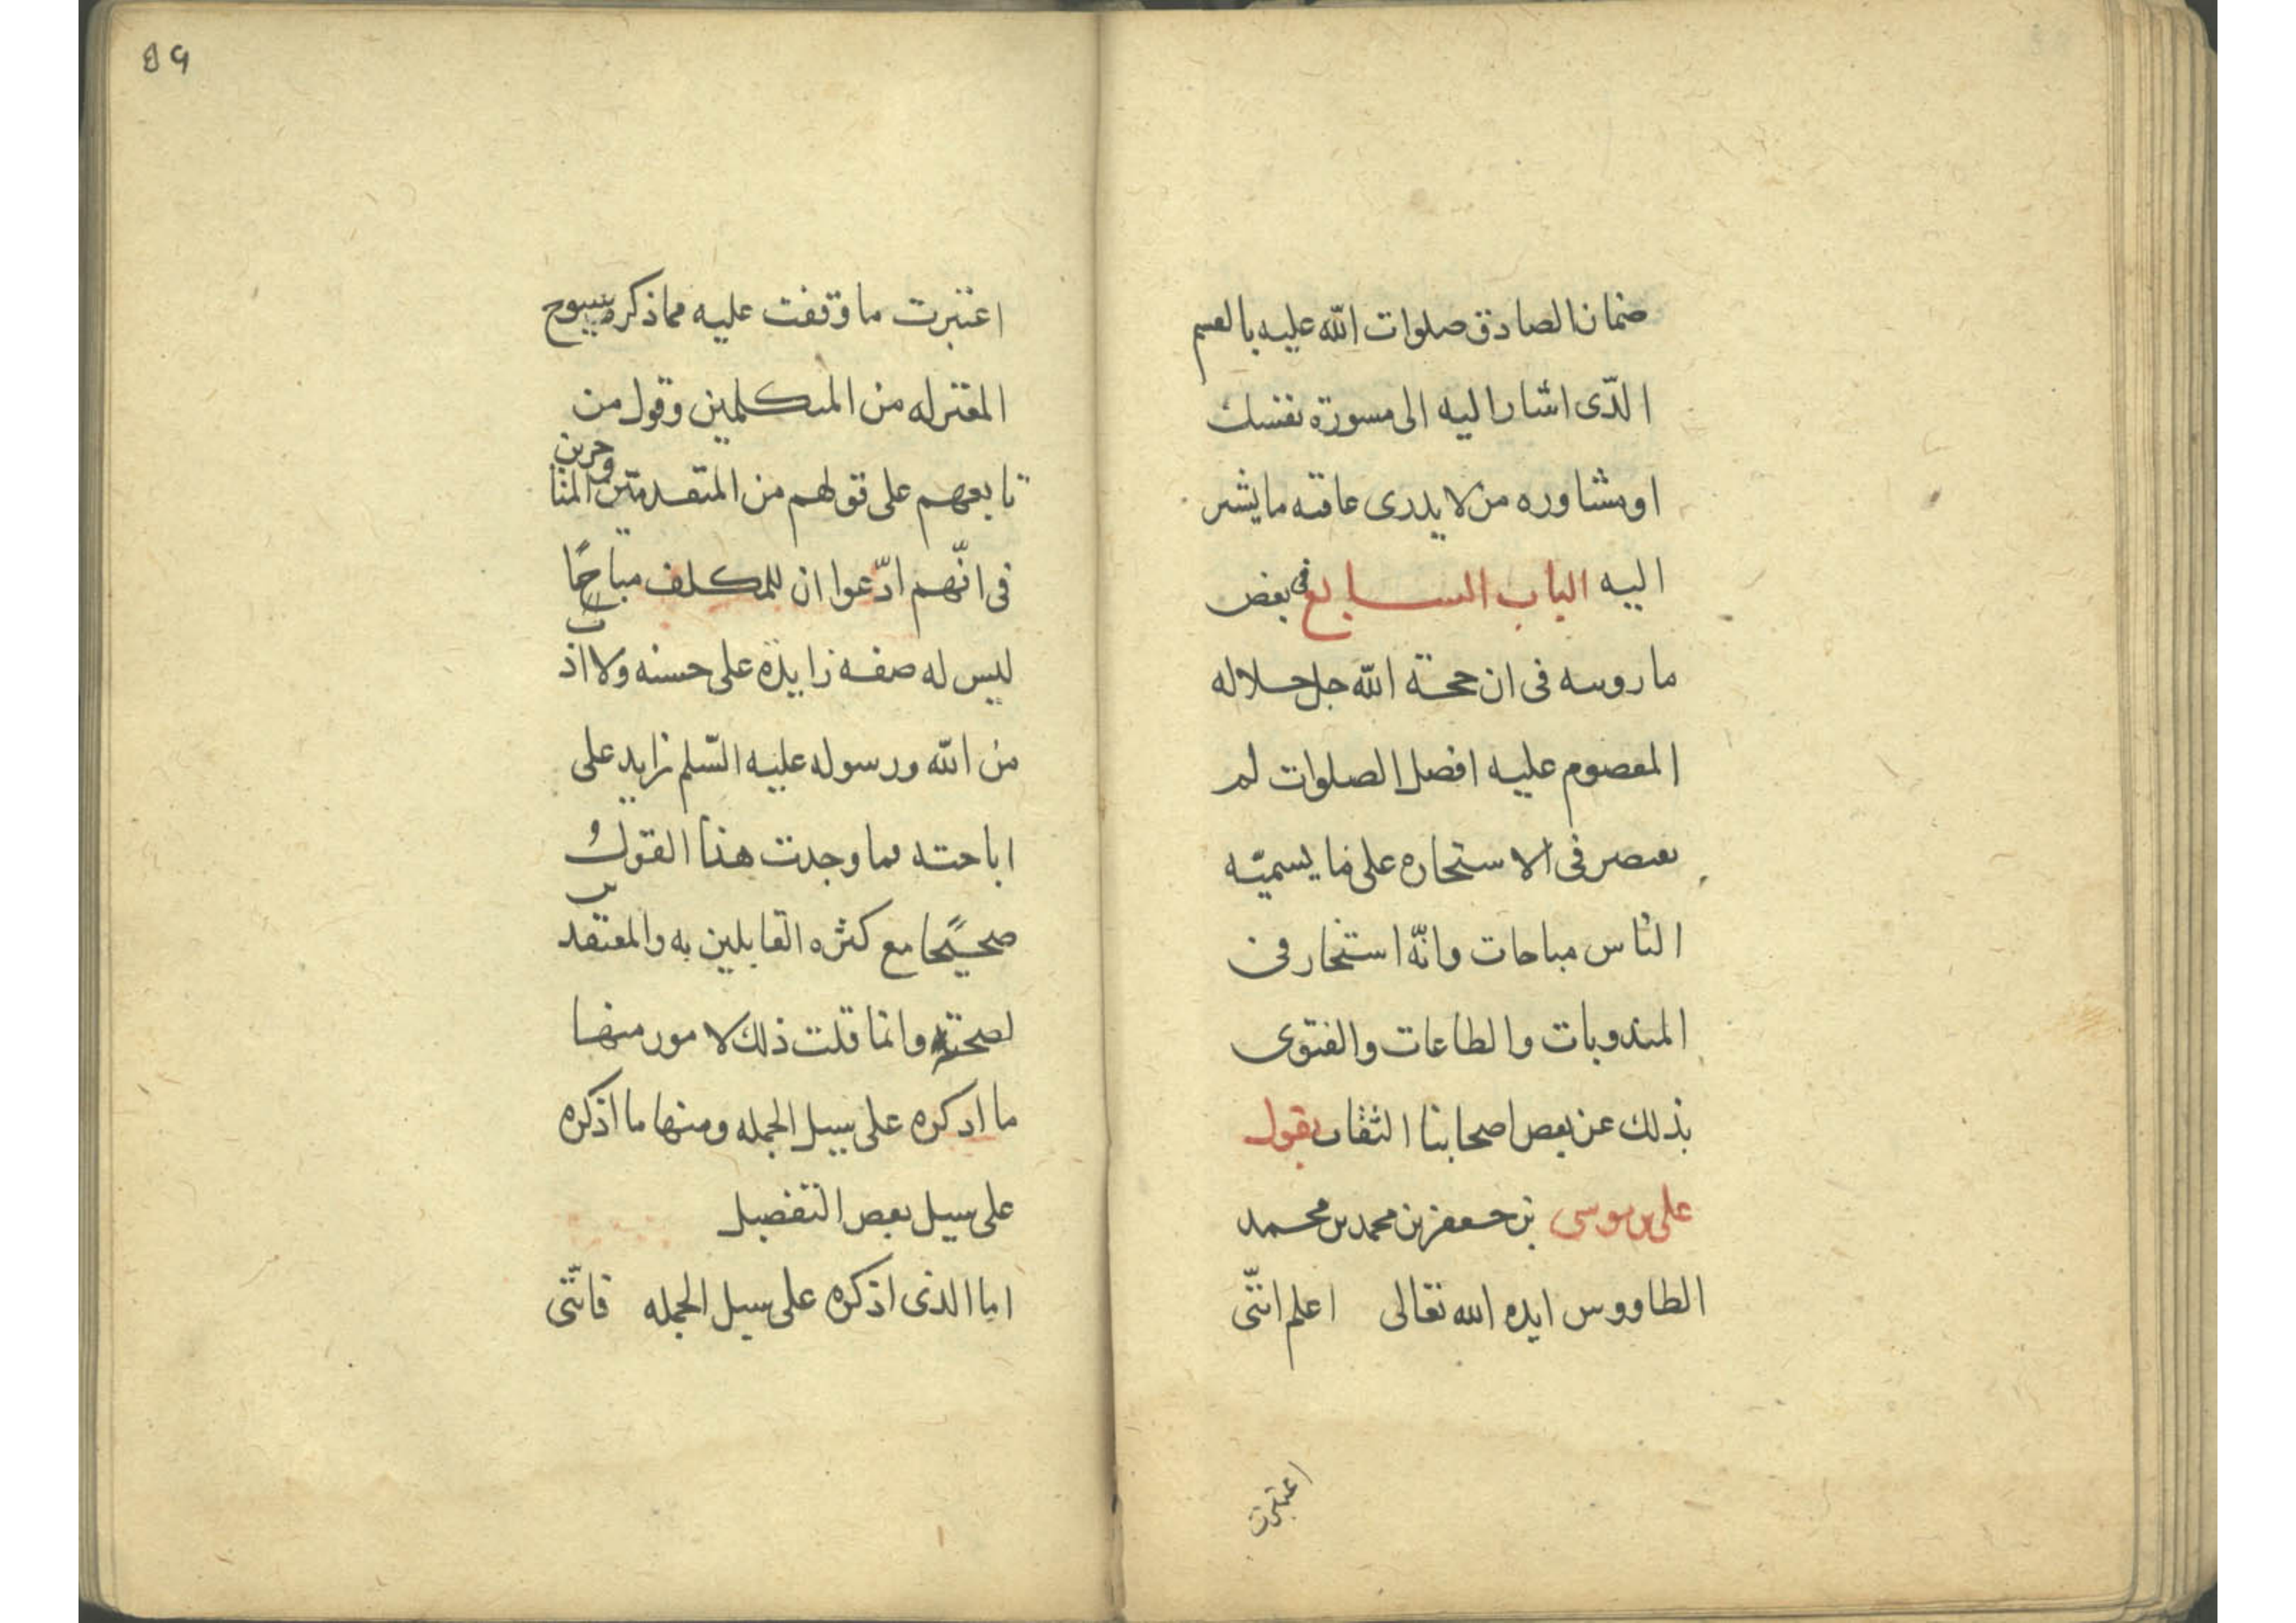 ضمان الصادق صلوات الله عليه بالقسم
الذى اشار اليه الى مسورة نفسك
او مشاوره من لا يدرى عاقبه ما يشير
اليه الباب السابع فى بعض
ما رويته فى ان حجة الله جل جلاله
المعصوم عليه افضل الصلوات لم
يقتصر فى الاستخاره على ما يسميه
الناس مباحات وانّه استخار فى
المندوبات والطاعات والفتوى
بذلك عن بعض اصحابنا الثقات يقول
على بن موسى بن جعفر بن محمد بن محمد
الطاووس ايده الله تعالى اعلم انّنى
اعتبرت
89
اعتبرت ما وقفت عليه مما ذكره شيوخ
المعتزله من المتكلمين وقول من
تابعهم على قولهم من المتقدمين والمتاخرين
فى انّهم ادّعوا ان للمكلف مباحًا
ليس له صفه زايدة على حسنه ولا اداب
من الله ورسوله عليه السّلم زايد على
اباحته فما وجدت هذا القول
صحيحًا مع كثره القايلين به والمعتقدين
لصحته وانما قلت ذلك لامور منها
ما اذكره على سبيل الجمله ومنها ما اذكره
على سبيل بعض التفصيل
اما الذى اذكره على سبيل الجمله فانّنى